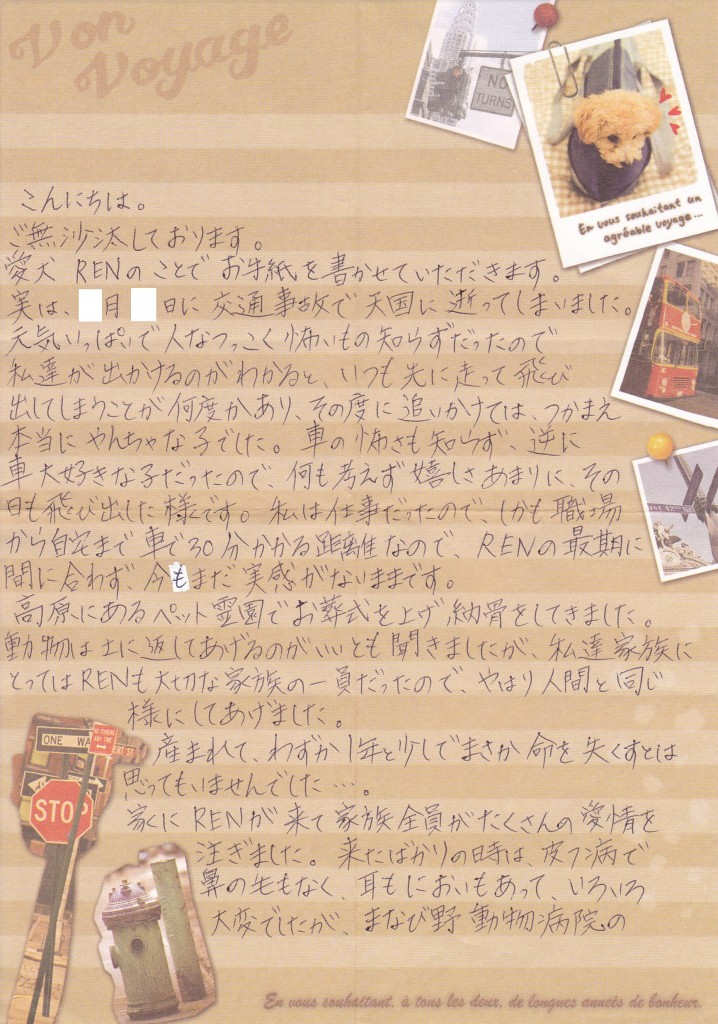 Von
Voyage
NO
TURNS
En vous souhaitant un
agréable voyage...
こんにちは。
ご無沙汰しております。
愛犬 RENのことでお手紙を書かせていただきます。
実は、 月 日に交通事故で天国に逝ってしまいました。
元気いっぱいで人なつっこく怖いもの知らずだったので
私達が出かけるのがわかると、いつも先に走って飛び
出してしまうことが何度かあり、その度に追いかけては、つかまえ
本当にやんちゃな子でした。車の怖さも知らず、逆に
車大好きな子だったので、何も考えず嬉しさあまりに、その
日も飛び出した様です。私は仕事だったので、しかも職場
から自宅まで車で30分かかる距離なので、RENの最期に
間に合わず、今もまだ実感がないままです。
高原にあるペット霊園でお葬式を上げ納骨をしてきました。
動物は土に返してあげるのがいいとも聞きましたが、私達家族に
とってはRENも大切な家族の一員だったので、やはり人間と同じ
様にしてあげました。
産まれて、わずか1年と少しでまさか命を失くすとは
思ってもいませんでした…。
家にRENが来て家族全員がたくさんの愛情を
注ぎました。来たばかりの時は、皮フ病で
鼻の先もなく、耳もにおいもあって、いろいろ
大変でしたが、まなび野動物病院の
ONE WA
STOP
En vous souhaitant, à tous les deux, de longues années de bonheur.